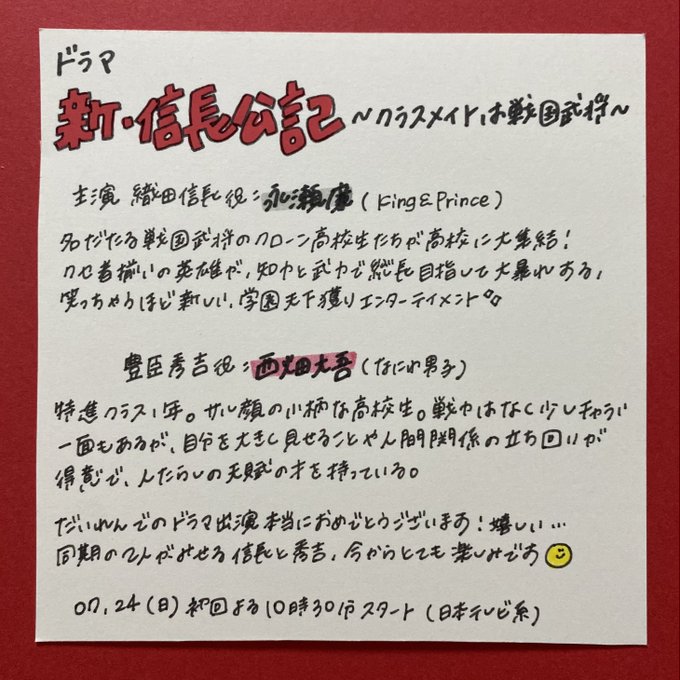 ドラマ
新・信長公記 〜クラスメイトは戦国武将〜
主演 織田信長役：永瀬廉（King&Prince）
名だたる戦国武将のクローン高校生たちが高校に大集結！
クセ者揃いの英雄が、知力と武力で総長目指して大暴れする、
笑っちゃうほど新しい、学園天下獲りエンターテイメント。
豊臣秀吉役：西畑大吾（なにわ男子）
特進クラス1年。サル顔の小柄な高校生。戦力はなく少しチャラい
一面もあるが、自分を大きく見せることや人間関係の立ち回りが
得意で、人たらしの天賦の才を持っている。
だいれんでのドラマ出演本当におめでとうございます！嬉しい…
同期の2人がみせる信長と秀吉、今からとても楽しみです
07.24（日）初回よる10時30分スタート（日本テレビ系）